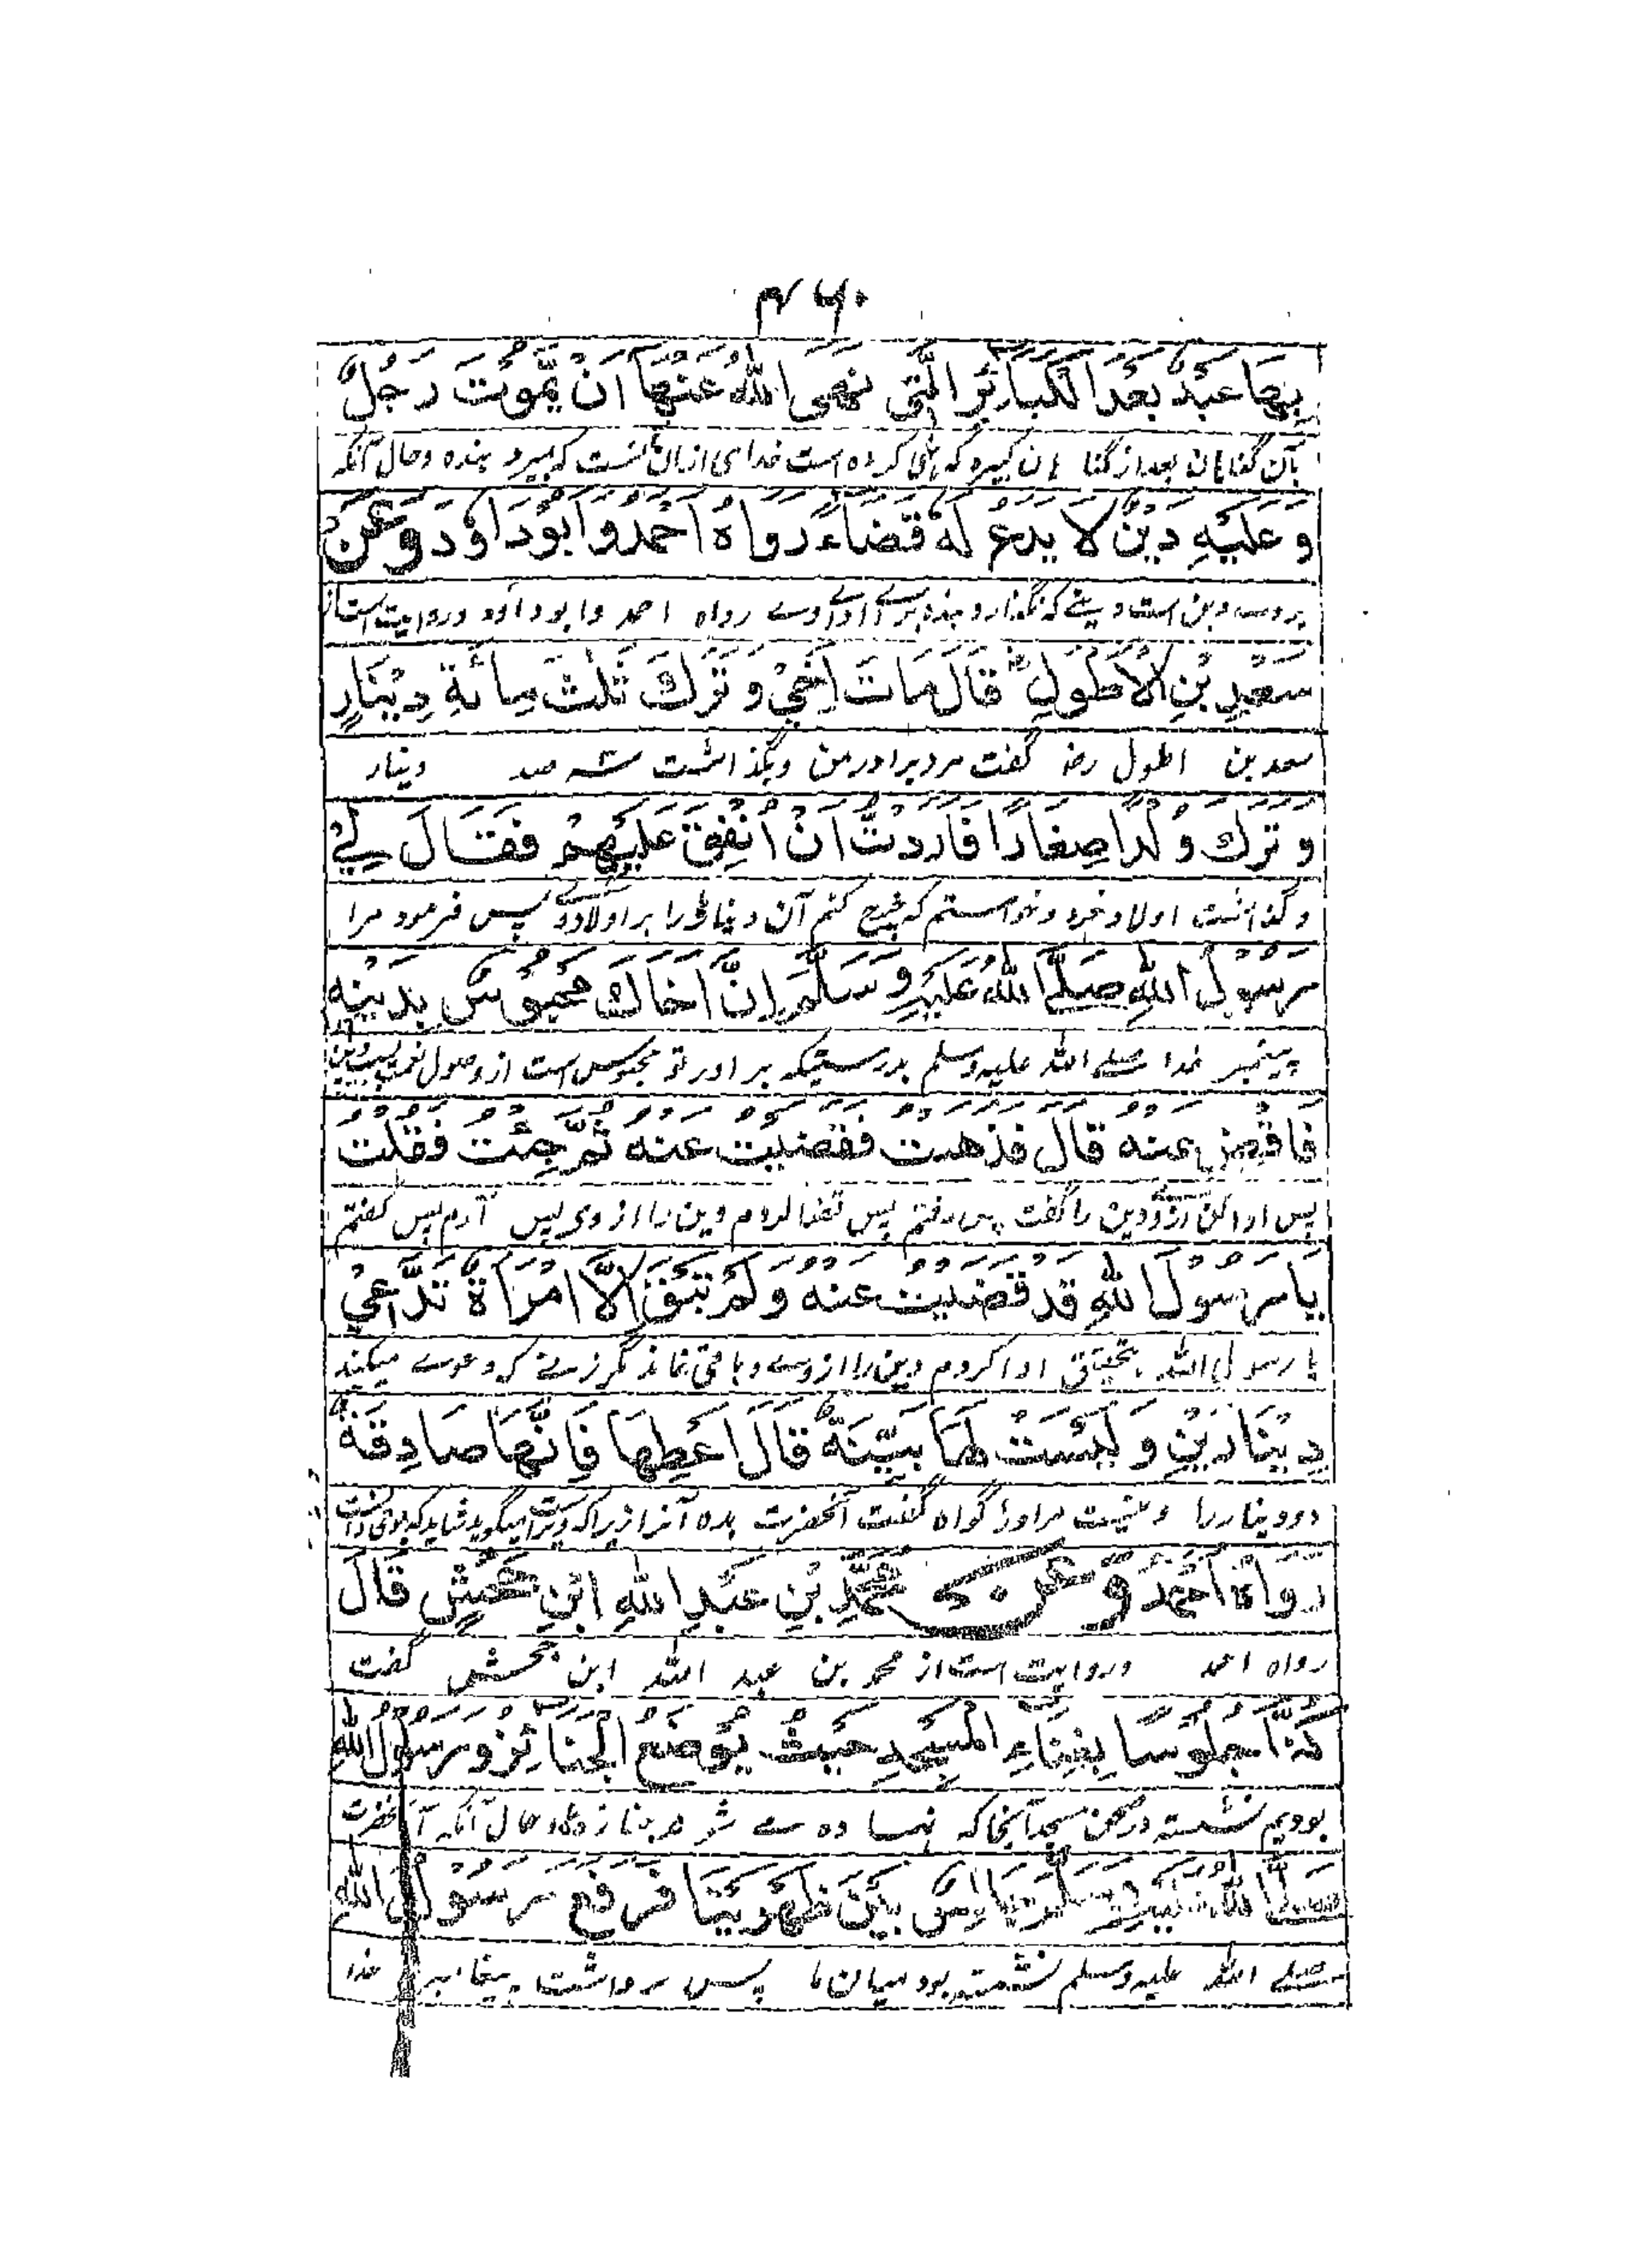 ۴۶۰
بِهَا عَبْدٌ بَعْدَ الْكَبَائِرِ الَّتِي نَهَى اللهُ عَنْهَا اَنْ يَّمُوْتَ رَجُلٌ
بآن گناهان بعد از گناهان کبیره که نهی کرده است خدای ازان اینست که بمیرد بنده وحال آنکه
وَعَلَيْهِ دَيْنٌ لَا يَدَعُ لَهٗ قَضَاءً رَوَاهُ اَحْمَدُ وَاَبُوْدَاوٗدَ وَعَنْ
بروے دین است دینے که نگذارد بنده براے اداے وے رواه احمد وابوداود وروایت است از
سَعْدِ بْنِ الْاَطْوَلِ رض قَالَ مَاتَ اَخِيْ وَتَرَكَ ثَلٰثَ مِائَةِ دِيْنَارٍ
سعد بن اطول رض گفت مرد برادر من وبگذاشت سه صد دینار
وَتَرَكَ وُلْدًا صِغَارًا فَاَرَدْتُّ اَنْ اُنْفِقَ عَلَيْهِمْ فَقَالَ لِيْ
وگذاشت اولاد خرد وخواستم که خرج کنم آن دینارها را بر اولاد وے پس فرمود مرا
رَسُوْلُ اللهِ صَلَّى اللهُ عَلَيْهِ وَسَلَّمَ اِنَّ اَخَاكَ مَحْبُوْسٌ بِدَيْنِهٖ
پیغمبر خدا صلے الله علیه وسلم بدرستیکه برادر تو محبوس است از وصول
فَاقْضِ عَنْهُ قَالَ فَذَهَبْتُ فَقَضَيْتُ عَنْهُ ثُمَّ جِئْتُ فَقُلْتُ
پس ادا کن ازو دین را گفت پس رفتم پس قضا کردم دین را از وی پس آمدم پس گفتم
يَا رَسُوْلَ اللهِ قَدْ قَضَيْتُ عَنْهُ وَلَمْ تَبْقَ اِلَّا امْرَاَةٌ تَدَّعِيْ
یا رسول الله بتحقیق ادا کردم دین را از وے وباقی نماند مگر زنے که دعوے میکند
دِيْنَارَيْنِ وَلَيْسَتْ لَهَا بَيِّنَةٌ قَالَ اَعْطِهَا فَاِنَّهَا صَادِقَةٌ
دو دینار را ونیست مر اورا گواه گفت آنحضرت بده آنرا زیراکه وے راست میگوید شاید که
رَوَاهُ اَحْمَدُ وَعَنْ مُحَمَّدِ بْنِ عَبْدِ اللهِ ابْنِ جَحْشٍ قَالَ
رواه احمد وروایت است از محمد بن عبد الله ابن جحش گفت
كُنَّا جُلُوْسًا بِفِنَاءِ الْمَسْجِدِ حَيْثُ يُوْضَعُ الْجَنَائِزُ وَرَسُوْلُ اللهِ
بودیم نشسته در صحن مسجد آنجا که نهاده مے شد جنازها وحال آنکه آنحضرت
صَلَّى اللهُ عَلَيْهِ وَسَلَّمَ جَالِسٌ بَيْنَ ظَهْرَيْنَا فَرَفَعَ رَسُوْلُ اللهِ
صلے الله علیه وسلم نشسته بود میان ما پس برداشت پیغامبر خدا